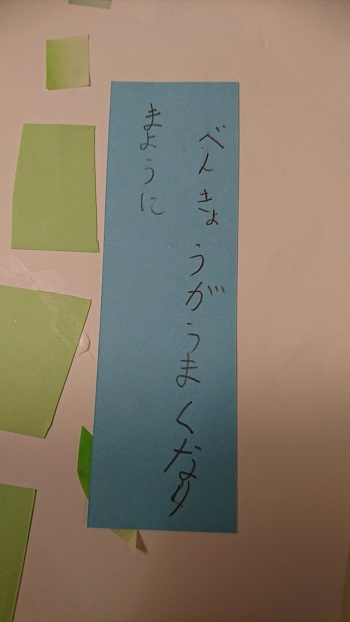 べんきょうがうまくなり
まように